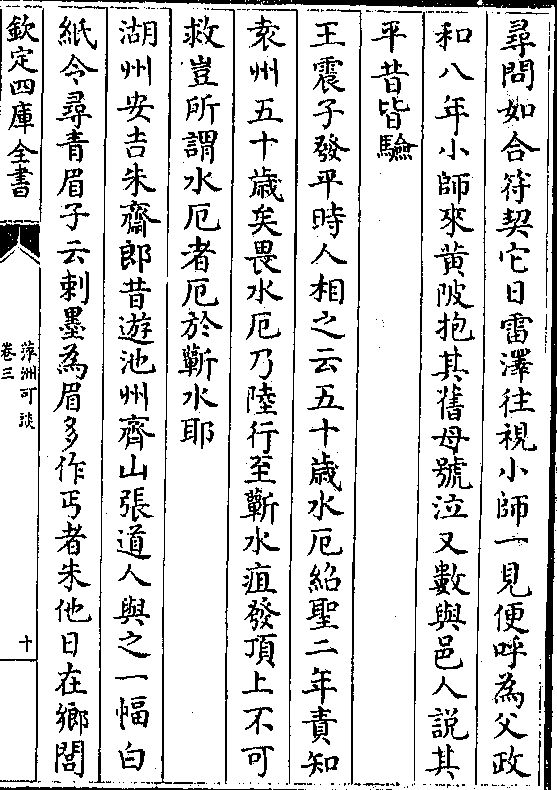 尋問如合符契它日雷澤往視小師一見便呼為父政
和八年小師來黄陂抱其舊母號泣又數與邑人説其
平昔皆驗
王震子發平時人相之云五十歲水厄紹聖二年責知
袁州五十歲矣畏水厄乃陸行至蘄水疽發頂上不可
救豈所謂水厄者厄於蘄水耶
湖州安吉朱齋郎昔遊池州齊山張道人與之一幅白
紙令尋青眉子云刺墨為眉多作丐者朱他日在鄉閭
欽定四庫全書
萍洲可談
卷三
十